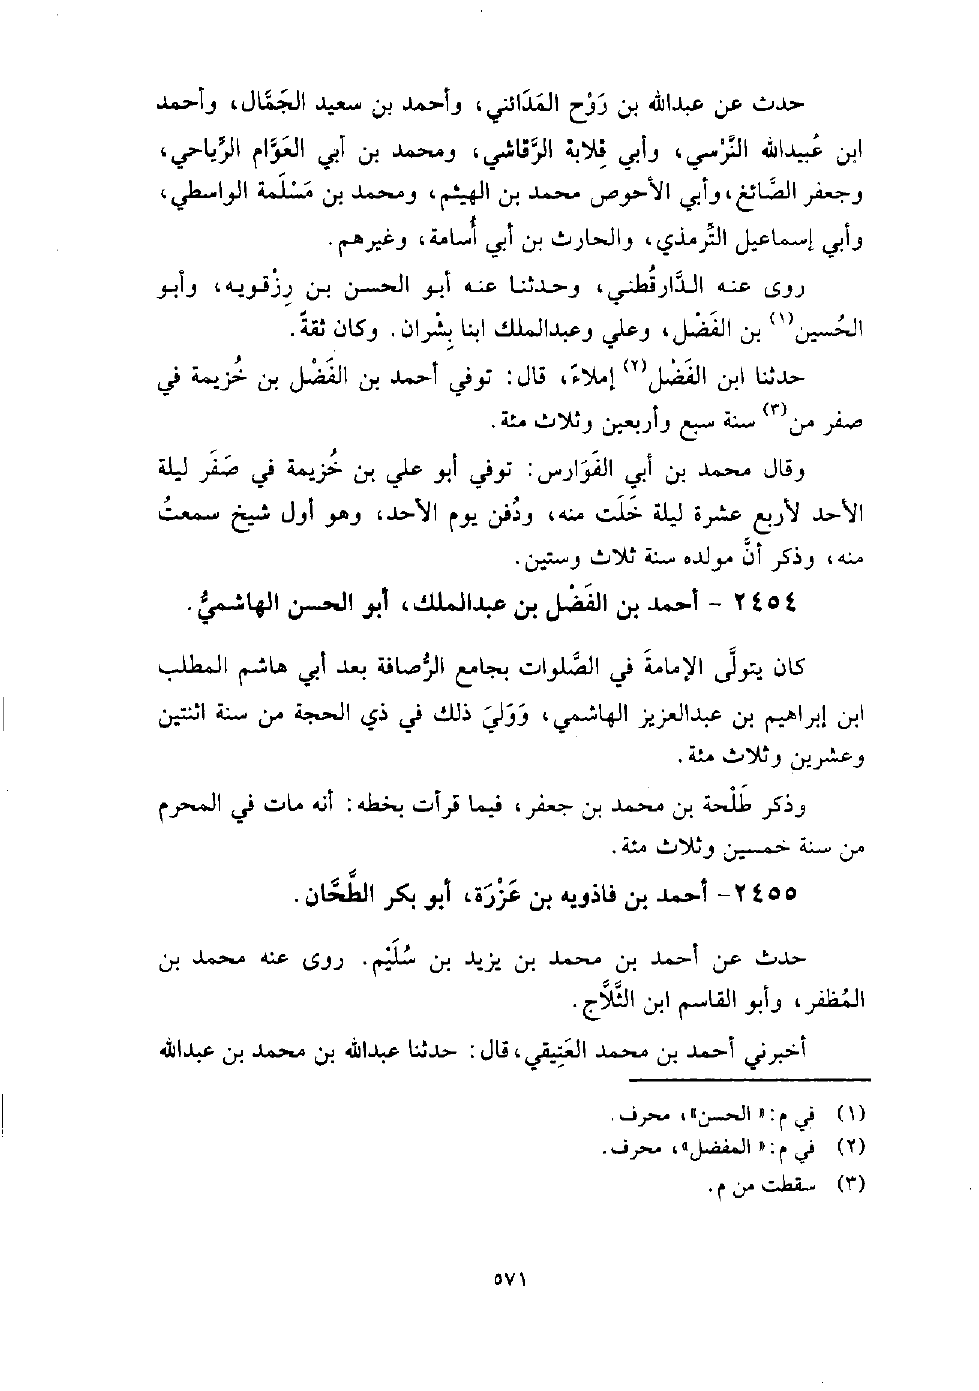 حدث عن عبدالله بن رَوْح المَدَائني، وأحمد بن سعيد الجَمَّال، وأحمد
ابن عُبيدالله النَّرْسي، وأبي قِلابة الرَّقاشي، ومحمد بن أبي العَوَّام الرِّياحي،
وجعفر الصَّائغ، وأبي الأحوص محمد بن الهيثم، ومحمد بن مَسْلَمة الواسطي،
وأبي إسماعيل التِّرمذي، والحارث بن أبي أُسامة، وغيرهم.
روى عنه الدَّارقُطني، وحدثنا عنه أبو الحسن بن رِزْقويه، وأبو
الحُسين(١) بن الفَضْل، وعلي وعبدالملك ابنا بِشْران. وكان ثقةً.
حدثنا ابن الفَضْل(٢) إملاءً، قال: توفي أحمد بن الفَضْل بن خُزيمة في
صفر من(٣) سنة سبع وأربعين وثلاث مئة.
وقال محمد بن أبي الفَوَارس: توفي أبو علي بن خُزيمة في صَفَر ليلة
الأحد لأربع عشرة ليلة خَلَت منه، ودُفن يوم الأحد، وهو أول شيخ سمعتُ
منه، وذكر أنَّ مولده سنة ثلاث وستين.
٢٤٥٤ - أحمد بن الفَضْل بن عبدالملك، أبو الحسن الهاشميُّ.
كان يتولَّى الإمامةَ في الصَّلوات بجامع الرُّصافة بعد أبي هاشم المطلب
ابن إبراهيم بن عبدالعزيز الهاشمي، وَوَليَ ذلك في ذي الحجة من سنة اثنتين
وعشرين وثلاث مئة.
وذكر طَلْحة بن محمد بن جعفر، فيما قرأت بخطه: أنه مات في المحرم
من سنة خمسين وثلاث مئة.
٢٤٥٥- أحمد بن فاذويه بن عَزْرَة، أبو بكر الطَّحَّان.
حدث عن أحمد بن محمد بن يزيد بن سُلَيْم. روى عنه محمد بن
المُظفر، وأبو القاسم ابن الثَّلَّاج.
أخبرني أحمد بن محمد العَتِيقي، قال: حدثنا عبدالله بن محمد بن عبدالله
(١) في م: «الحسن»، محرف.
(٢) في م: «المفضل»، محرف.
(٣) سقطت من م.
٥٧١